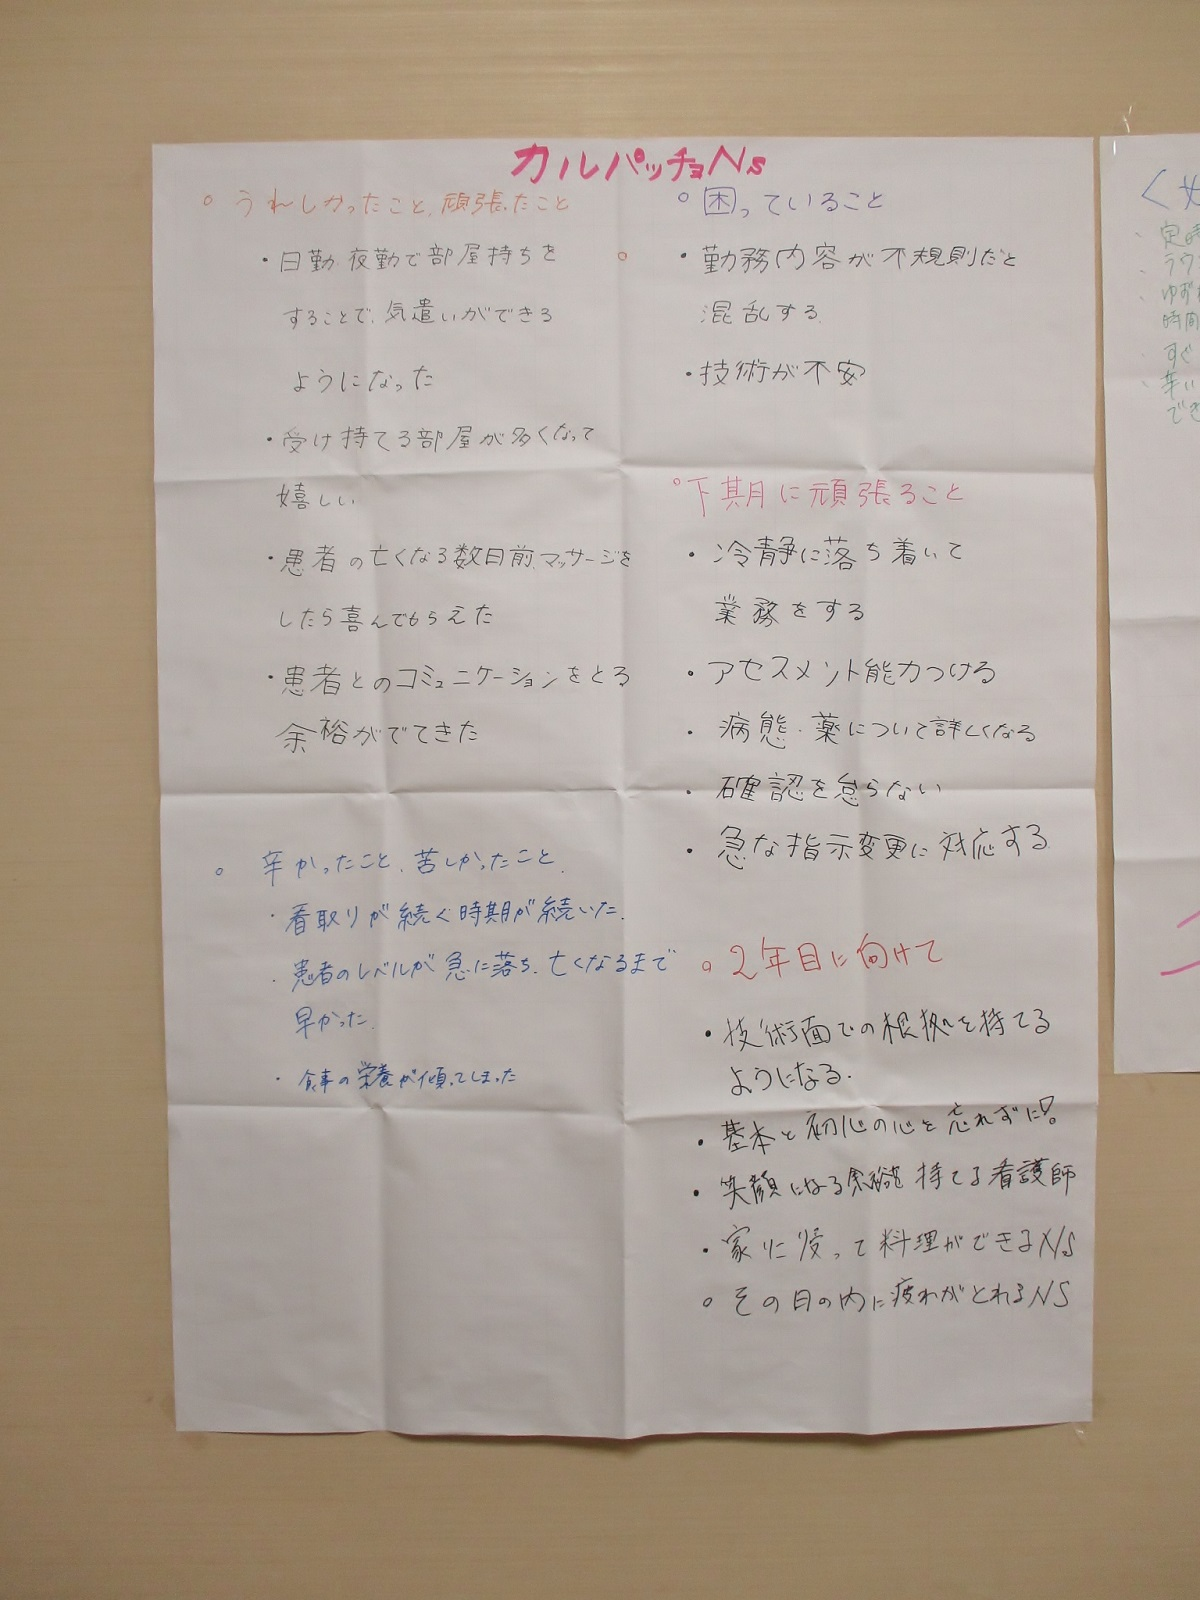 カルパッチョNs
◦ うれしかったこと、頑張たこと
・日勤、夜勤で部屋持ちを
することで、気遣いができる
ようになった
・受け持てる部屋が多くなって
嬉しい
・患者の亡くなる数日前、マッサージを
したら喜んでもらえた
・患者とのコミュニケーションをとる
余裕がでてきた
◦ 辛かったこと、苦しかったこと、
・看取りが続く時期が続いた。
・患者のレベルが急に落ち、亡くなるまで
早かった。
・食事の栄養が傾ってしまった
◦ 困っていること
・勤務内容が不規則だと
混乱する。
・技術が不安
◦下期月に頑張ること
・冷静に落ち着いて
業務をする
・アセスメント能力つける
・病態・薬について詳しくなる
・確認を怠らない
・急な指示変更に対応する
◦ 2年目に向けて
・技術面での根拠を持てる
ようになる。
・基本と初心の心を忘れずに!
・笑顔になる余裕を持てる看護師
・家に帰って料理ができるNS
◦ その日の内に疲れがとれるNS
定時
ゆず
時間
すぐ
辛い
でき